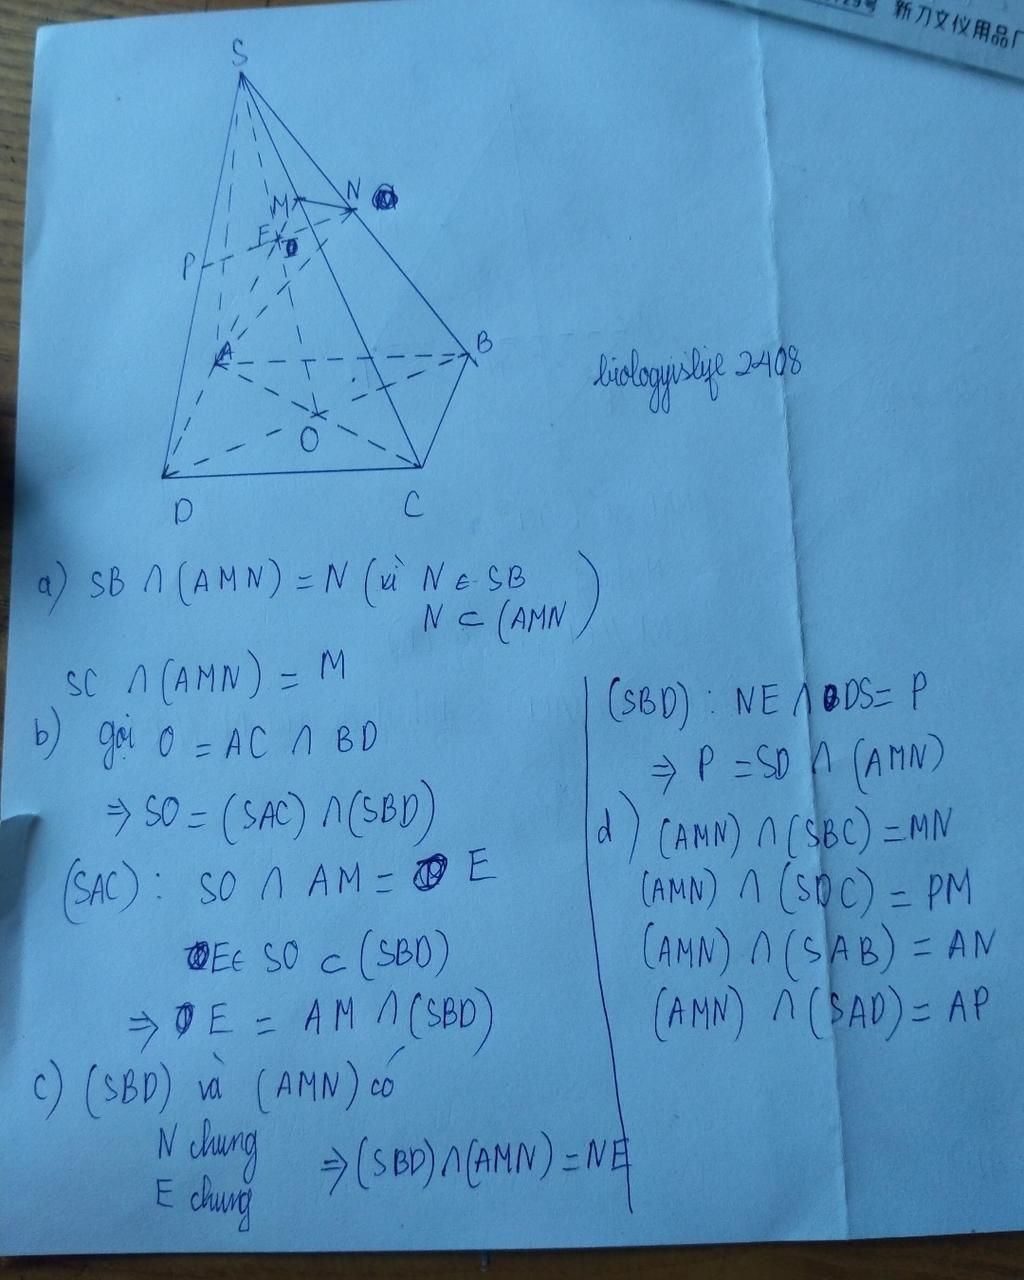 新刀文仪用品厂
S
M
N
E
P
A
B
O
D
C
biologyislife 2408
a) SB ∩ (AMN) = N (vì N ∈ SB
N ⊂ (AMN)
SC ∩ (AMN) = M
b) gọi O = AC ∩ BD
⇒ SO = (SAC) ∩ (SBD)
(SAC) : SO ∩ AM = E
E ∈ SO ⊂ (SBD)
⇒ E = AM ∩ (SBD)
c) (SBD) và (AMN) có
N chung
E chung
⇒ (SBD) ∩ (AMN) = NE
(SBD) : NE ∩ DS = P
⇒ P = SD ∩ (AMN)
d) (AMN) ∩ (SBC) = MN
(AMN) ∩ (SDC) = PM
(AMN) ∩ (SAB) = AN
(AMN) ∩ (SAD) = AP